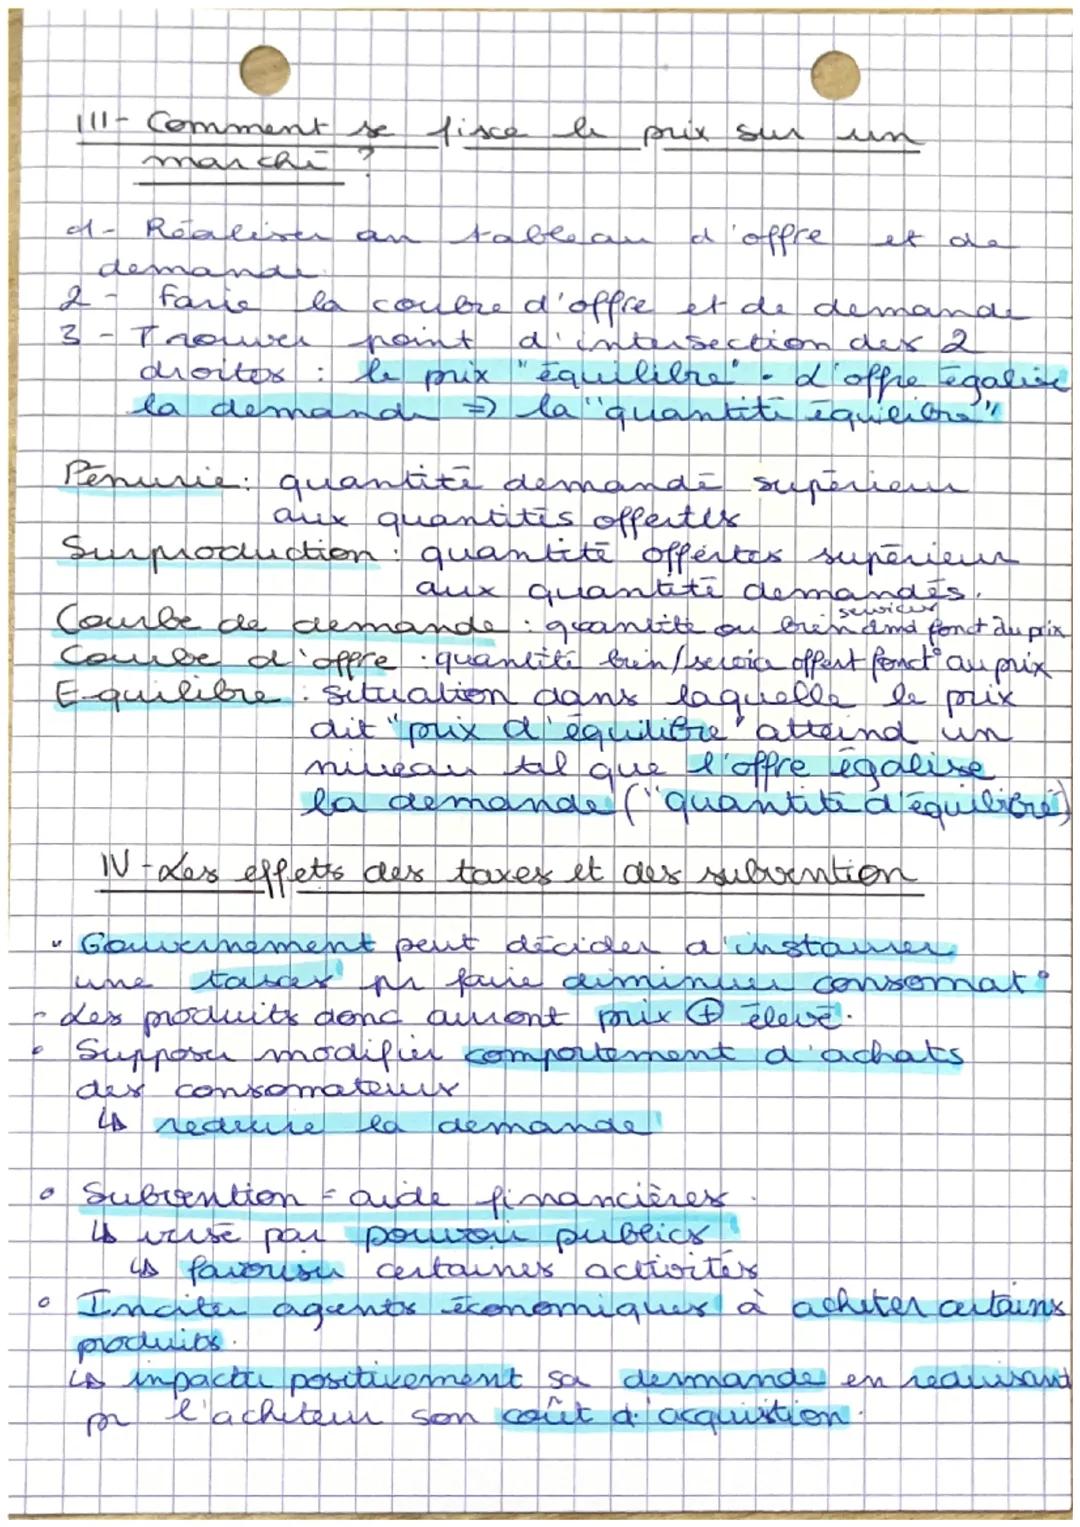 III- Comment se fixe le prix sur un
marché ?
1- Réaliser un tableau d'offre et de
demande.
2- Farie la coubre d'offre et de demande
3- Trouver point d'intersection des 2
droites : le prix "équilibre" - d'offre égalise
la demande => la "quantité équilibre"
Pénurie: quantité demandé supérieur
aux quantités offertes
Surproduction : quantité offertes supérieur
aux quantité demandés.
services
Courbe de demande : quantité ou bien dmd fonct° du prix
Courbe d'offre : quantité bien/service offert fonct° au prix
Equilibre : situation dans laquelle le prix
dit "prix d'équilibre" atteind un
niveau tel que l'offre égalise
la demande ("quantité d'équilibre")
IV - Les effets des taxes et des subvention
• Gouvernement peut décider d'instaurer
une taxes pr faire diminuer consomat°
- Les produits donc auront prix ⊕ élevé.
• Supposer modifier comportement d'achats
des consomateurs
↳ reduire la demande
• Subvention = aide financières.
↳ versé par pouvoir publics
↳ favoriser certaines activités
• Inciter agents économiques à acheter certains
produits.
↳ impacter positivement sa demande en réduisant
pr l'acheteur son coût d'acquistion.